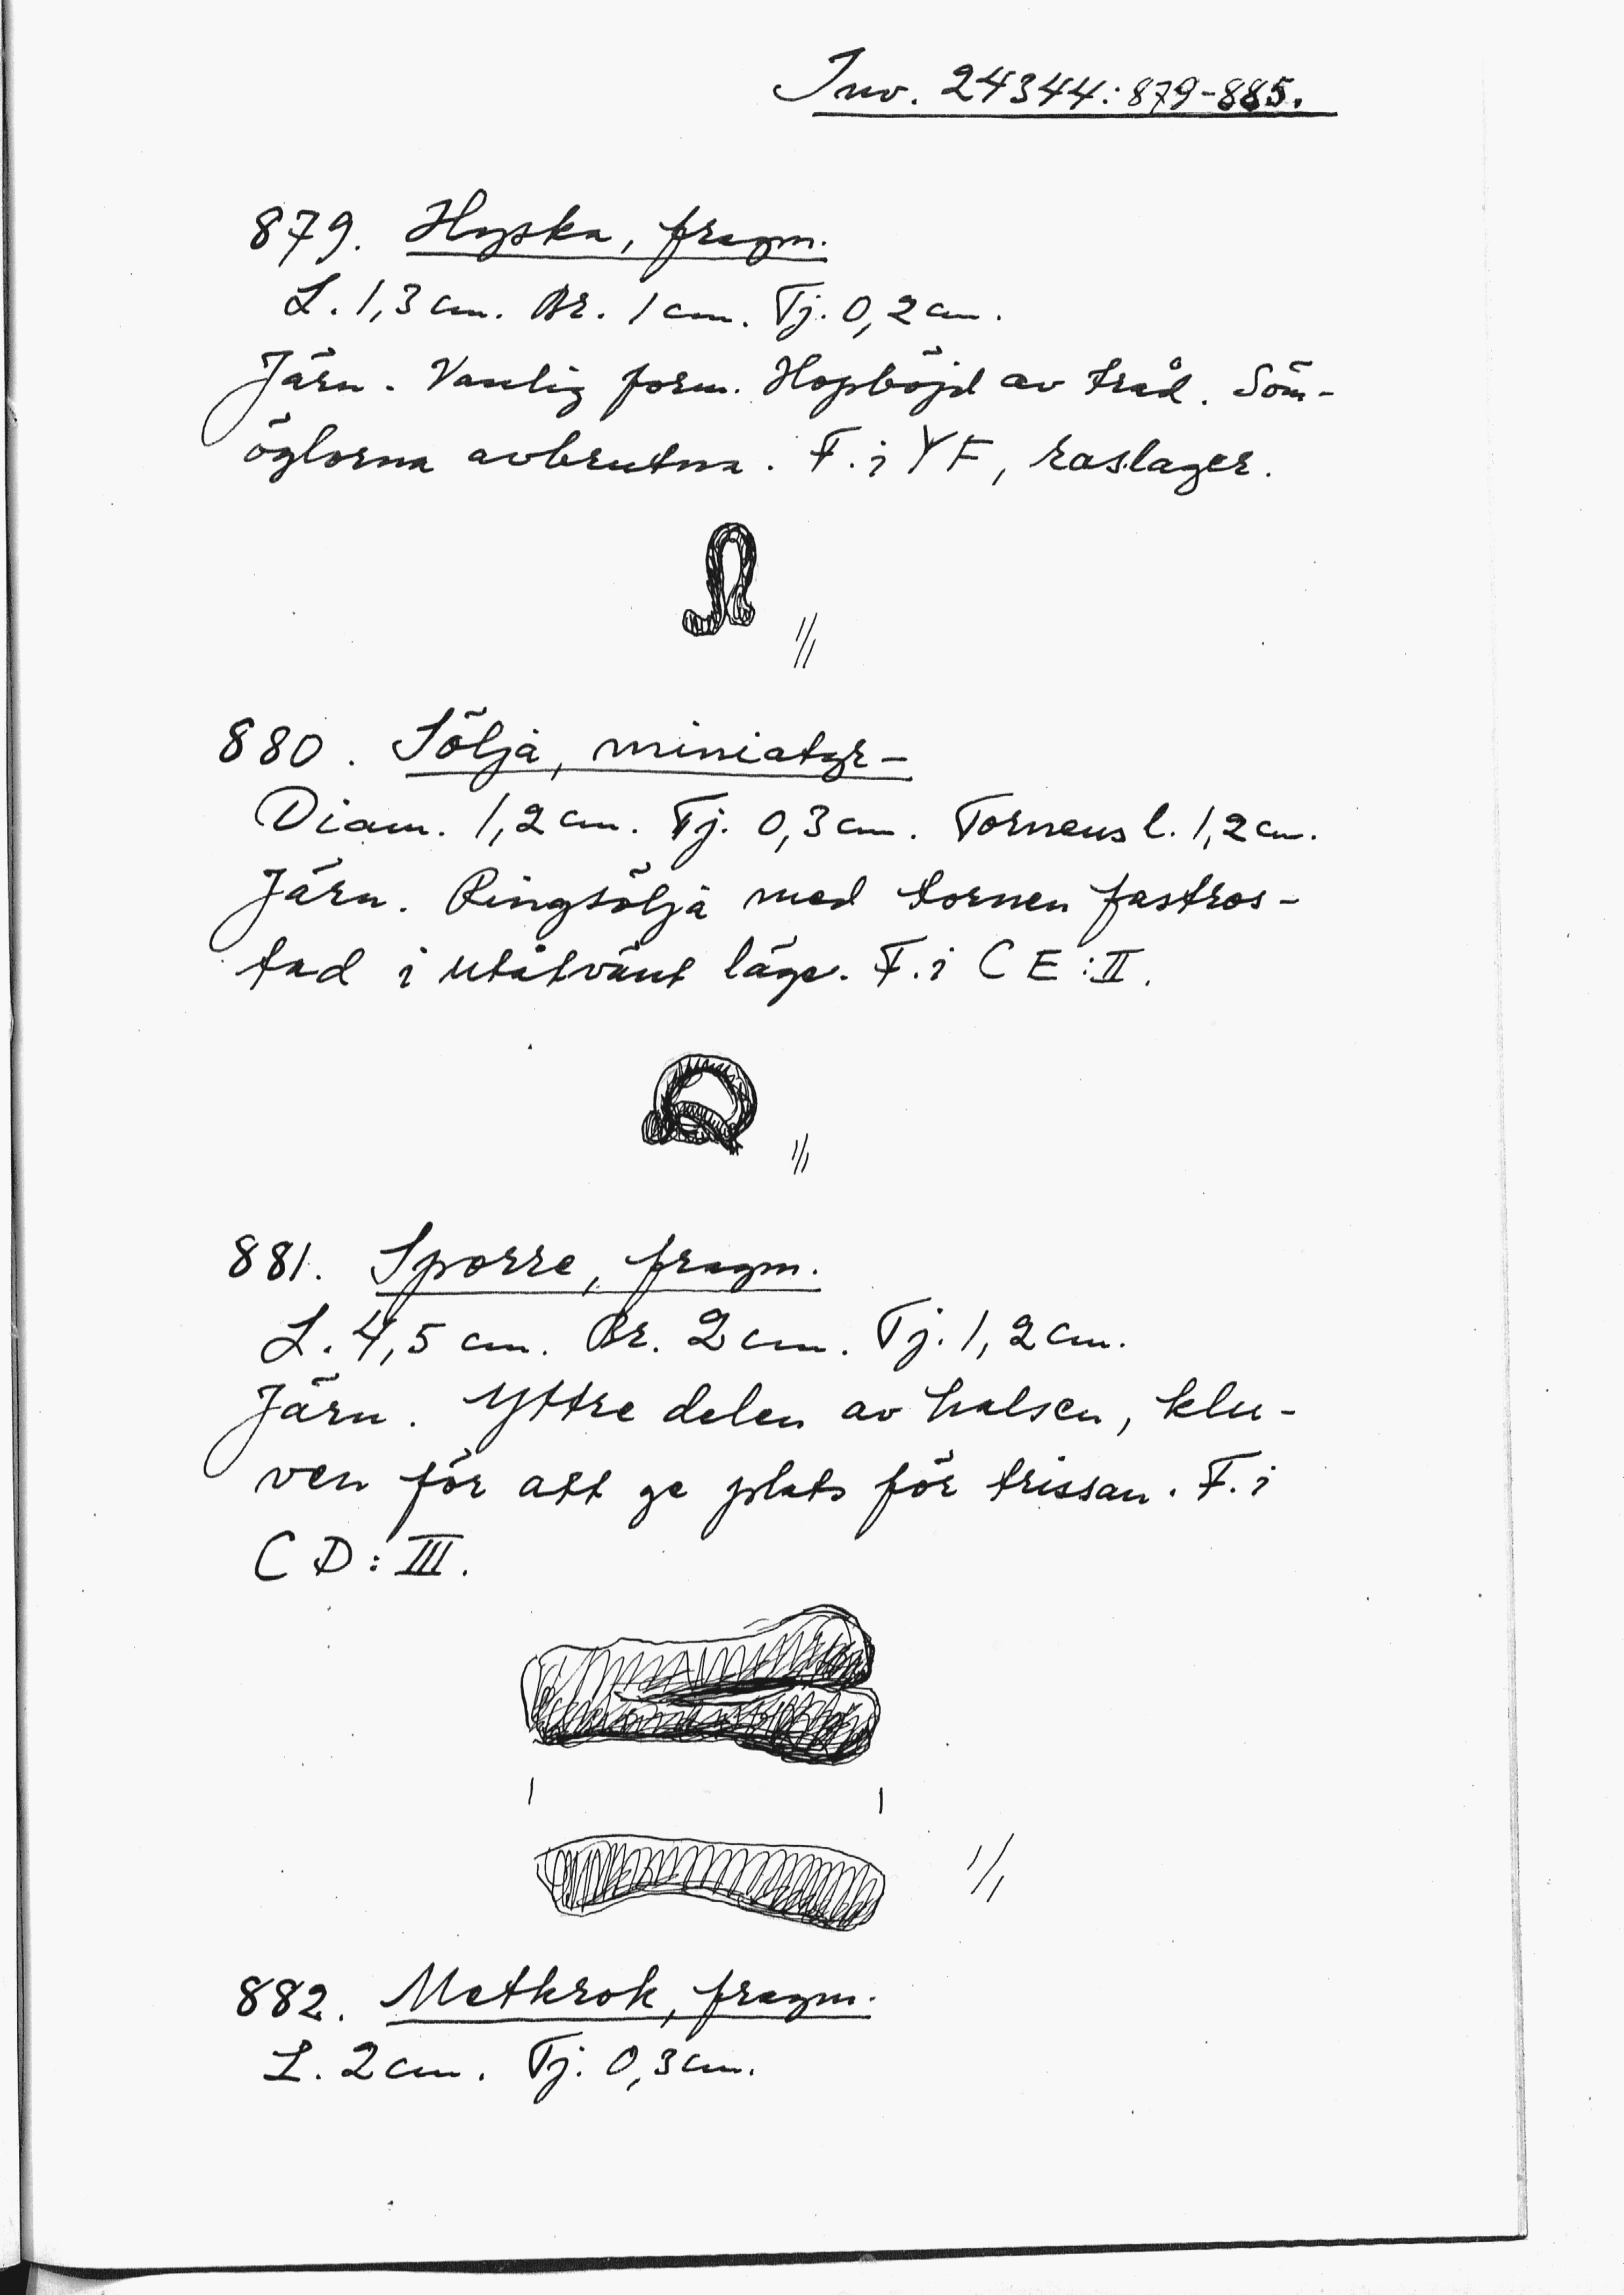 Inv. 24344:879-885.
879. Hyska, fragm.
L. 1,3 cm. Br. 1 cm. Tj. 0,2 cm.
Järn. Vanlig form. Hopböjd av tråd. Söm-
öglorna avbrutna. F. i YF, raslager.
1/1
880. Sölja, miniatyr-
Diam. 1,2 cm. Tj. 0,3 cm. Tornens l. 1,2 cm.
Järn. Ringsölja med tornen fastros-
tad i utåtvänt läge. F. i CE:II.
1/1
881. Sporre, fragm.
L. 4,5 cm. Br. 2 cm. Tj. 1,2 cm.
Järn. Yttre delen av halsen, klu-
ven för att ge plats för trissan. F. i
CD:III.
1/1
882. Metkrok, fragm.
L. 2 cm. Tj. 0,3 cm.